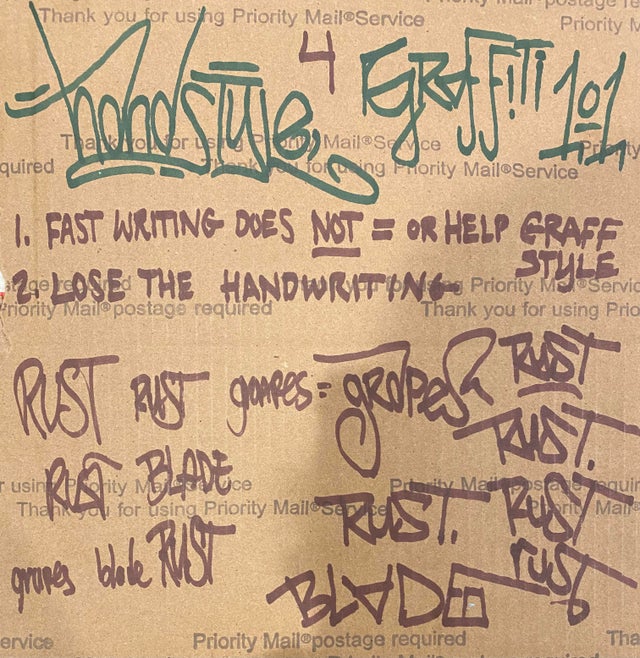 Thank you for using Priority Mail®Service
Priority M
handstyle 4 GRAFFiTi 101
Thank you for using Priority Mail®Service
quired
Thank you for using Priority Mail®Service
1. FAST WRITING DOES NOT = OR HELP GRAFF STYLE
2. LOSE THE HANDWRITING
using Priority Mail®Servic
Priority Mail®postage required
Thank you for using Prio
RUST RUST grapes = grapes RUST
RUST.
RUST BLADE
r using Priority Mail®Service
Priority Mail®postage requir
Thank you for using Priority Mail®Service
RUST. RUST
grapes blade RUST
rust
BLADE
ervice
Priority Mail®postage required
Tha